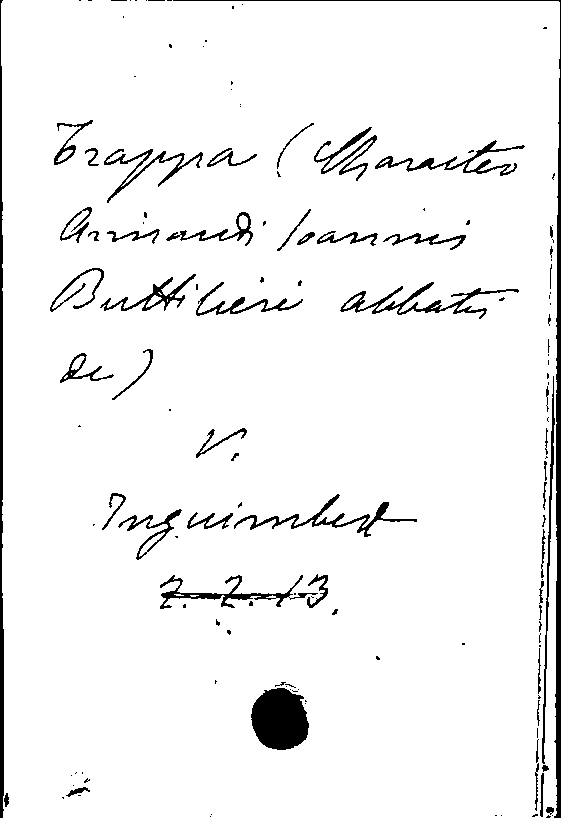 Trappa (Character
Armandi Ioannis
Buttilieri abbatis
de)
V.
Inguimbert
Z. Z. 13.